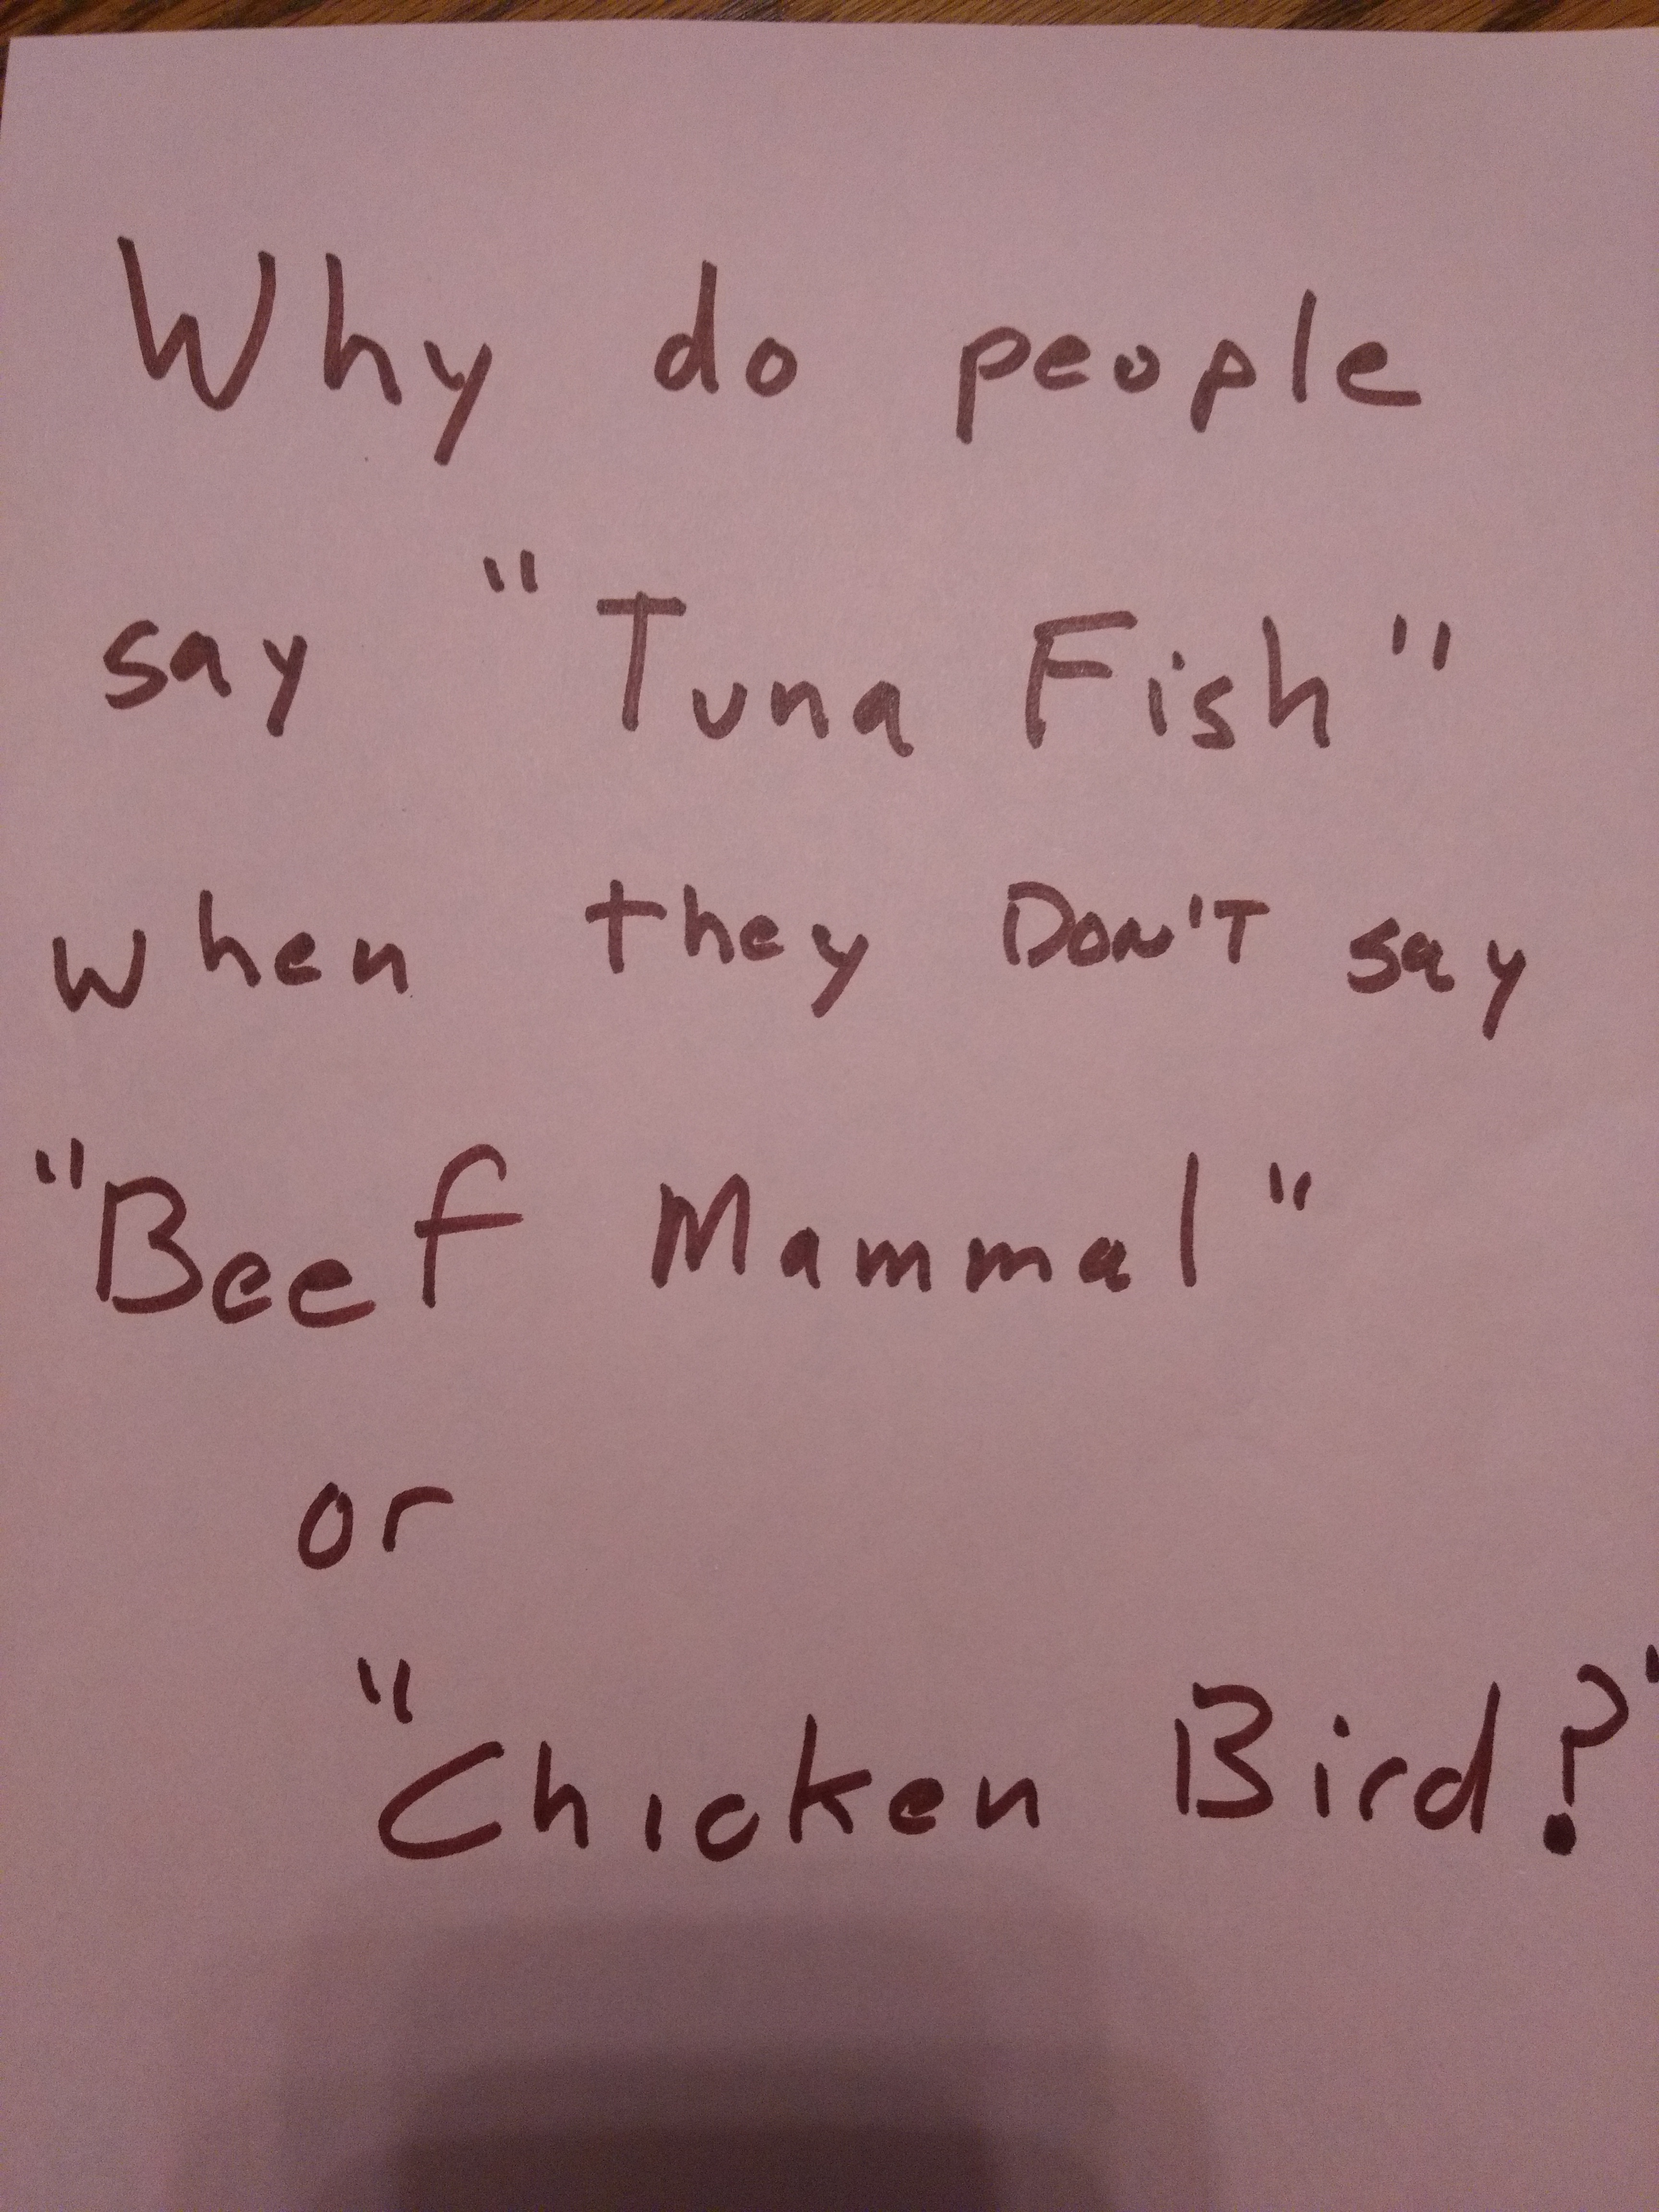 Why do people
say "Tuna Fish"
when they DON'T say
"Beef Mammal"
or
"Chicken Bird?"